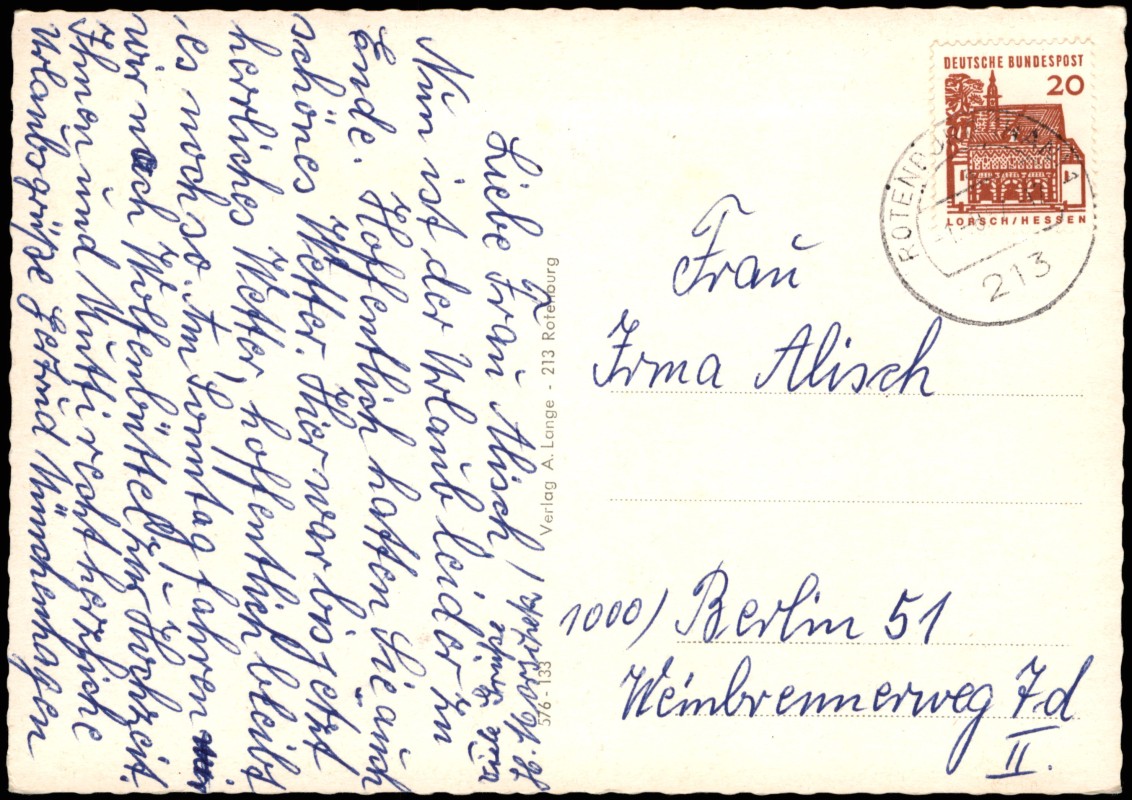 Liebe Frau Alisch!
Nun ist der Urlaub leider zu
Ende. Hoffentlich hatten Sie auch
schönes Wetter. Hier war bis jetzt
herrliches Wetter, hoffentlich bleibt
es noch so. Am Sonntag fahren
wir noch Wolfenbüttel zur Hochzeit.
Ihnen und Mutti recht herzliche
Urlaubsgrüße Gertrud Münchenhagen
Verlag A. Lange - 213 Rotenburg
576 - 133
DEUTSCHE BUNDESPOST
20
LORSCH/HESSEN
213
Frau
Irma Alisch
1000) Berlin 51
Weinbrennerweg 7d
II.